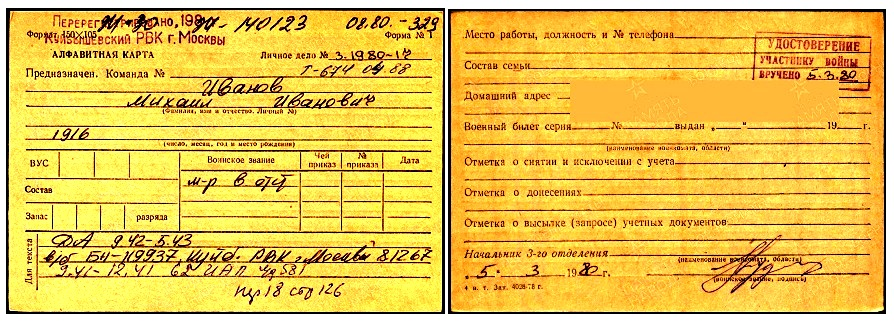 Перерегистрировано, 198
140123 08.80.-329
Формат 150×105 Форма № 1
Куйбышевский РВК г. Москвы
АЛФАВИТНАЯ КАРТА Личное дело № 3.1980-17
Предназначен. Команда № Т-674
Иванов
Михаил Иванович
(Фамилия, имя и отчество. Личный №)
1916
(число, месяц, год и место рождения)
ВУС Воинское звание Чей приказ № приказа Дата
м-р в отст
Состав
Запас разряда
Для текста
ДА 9.42-5.43
в/б БЧ-119937 Куйб. РВК г. Москвы 81267
9.41-12.41 62 ИАП
стр 126
Место работы, должность и № телефона
УДОСТОВЕРЕНИЕ
УЧАСТНИКУ ВОЙНЫ
ВРУЧЕНО 5.3.80
Состав семьи
Домашний адрес
Военный билет серия № выдан „ “ 19 г.
(наименование военкомата, области)
Отметка о снятии и исключении с учета
Отметка о донесениях
Отметка о высылке (запросе) учетных документов
Начальник 3-го отделения
(наименование военкомата, области)
„5“ 3 1980 г.
(воинское звание, подпись)
4 в. т. Зак. 4028-78 г.